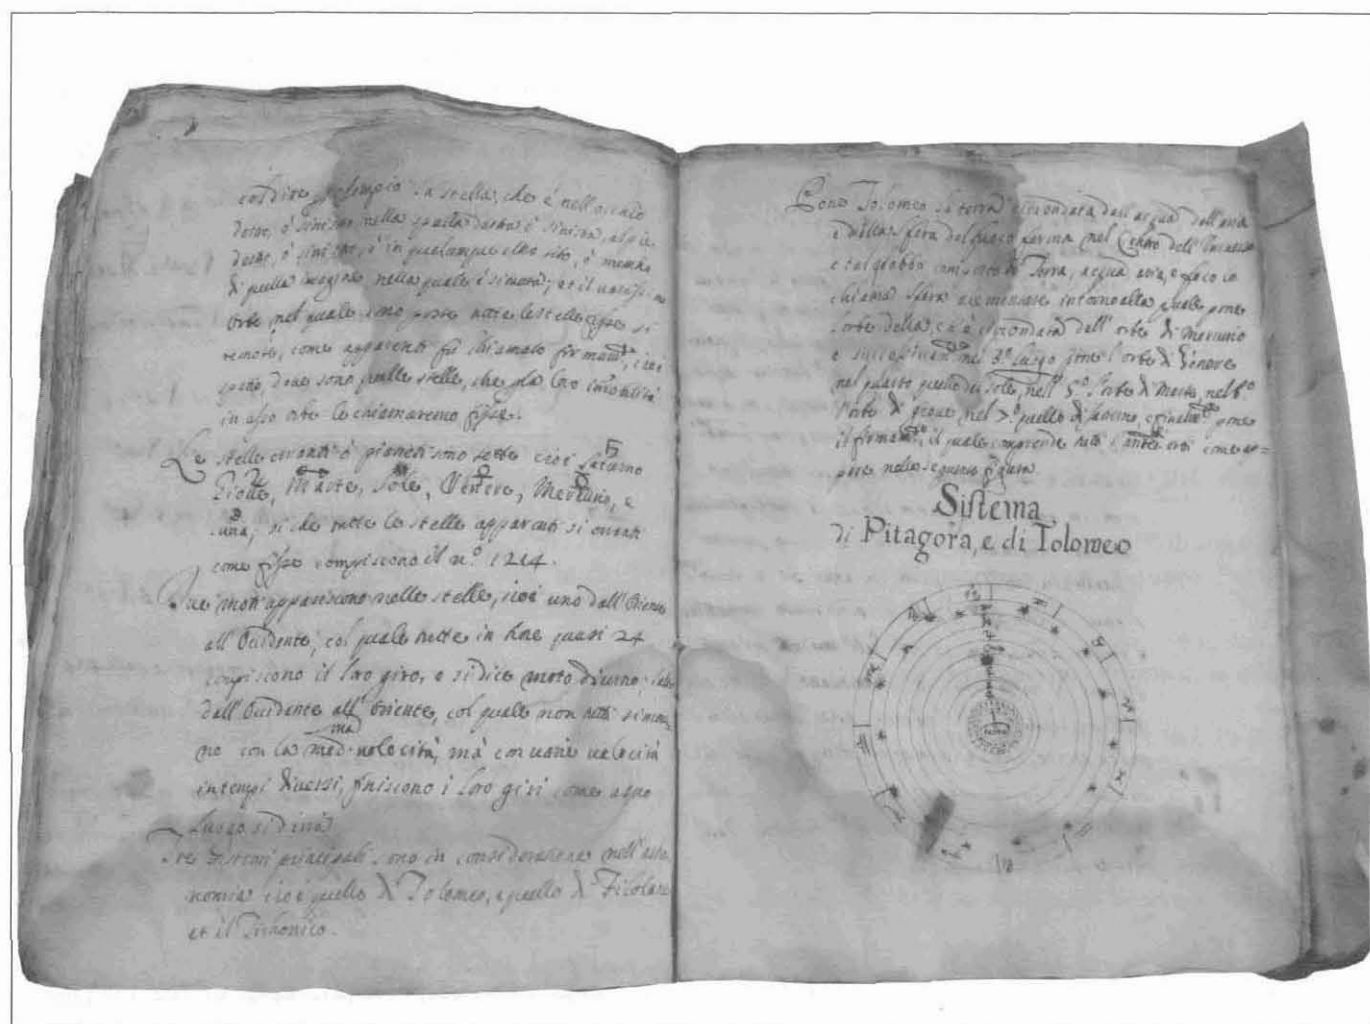 stella, che è nell'occhio
destro, ò sinistro, nella spalla destra ò sinistra, al pie
destro, ò sinistro, ò in qualunque altro sito, ò membro
di quella imagine nella quale è situata; et il
orbe, nel quale sono poste tutte le stelle fisse si
remote, come apparenti fù chiamato firmam.to, cioè
dove sono quelle stelle, che p la loro
in esso orbe le chiamaremo fisse.
Le stelle erranti ò pianeti sono sette cioè Saturno
Giove, Marte, Sole, Venere, Mercurio, e
Luna, si che tutte le stelle apparenti si erranti
come fisse compiscono il n.o 1214.
Due moti appariscono nelle stelle, cioè uno dall'Oriente
all'Occidente, col quale tutte in hore quasi 24
compiscono il loro giro, e si dice moto diurno;
dall'Occidente all'Oriente, col quale non tutti si
no con la med.ma velocità, mà con varie velocità
in tempi diversi, finiscono i loro giri come a suo
luogo si dirrà
Tre sistemi principali sono in consideratione nell'astro
nomia cioè quello di Tolomeo, e quello di Filolao
et il Tichonico.
Pone Tolomeo la terra circondata dall'acqua dall'aria
e dalla sfera del fuoco nel Centro dell'Universo
e tal globbo di Terra, acqua, aria, e foco lo
chiama sfera intorno alla quale pone
l'orbe della, circondata dall'orbe di Mercurio
e nel 3.o luogo pone l'orbe di Venere
nel quarto quello del Sole, nell'5.o l'orbe di Marte, nel 6.o
l'orbe di Giove, nel 7.o quello di Saturno, e finalm.te pone
il firmam.to, il quale comprende tutti orbi come ap=
pare nella seguente figura
Sistema
di Pitagora, e di Tolomeo